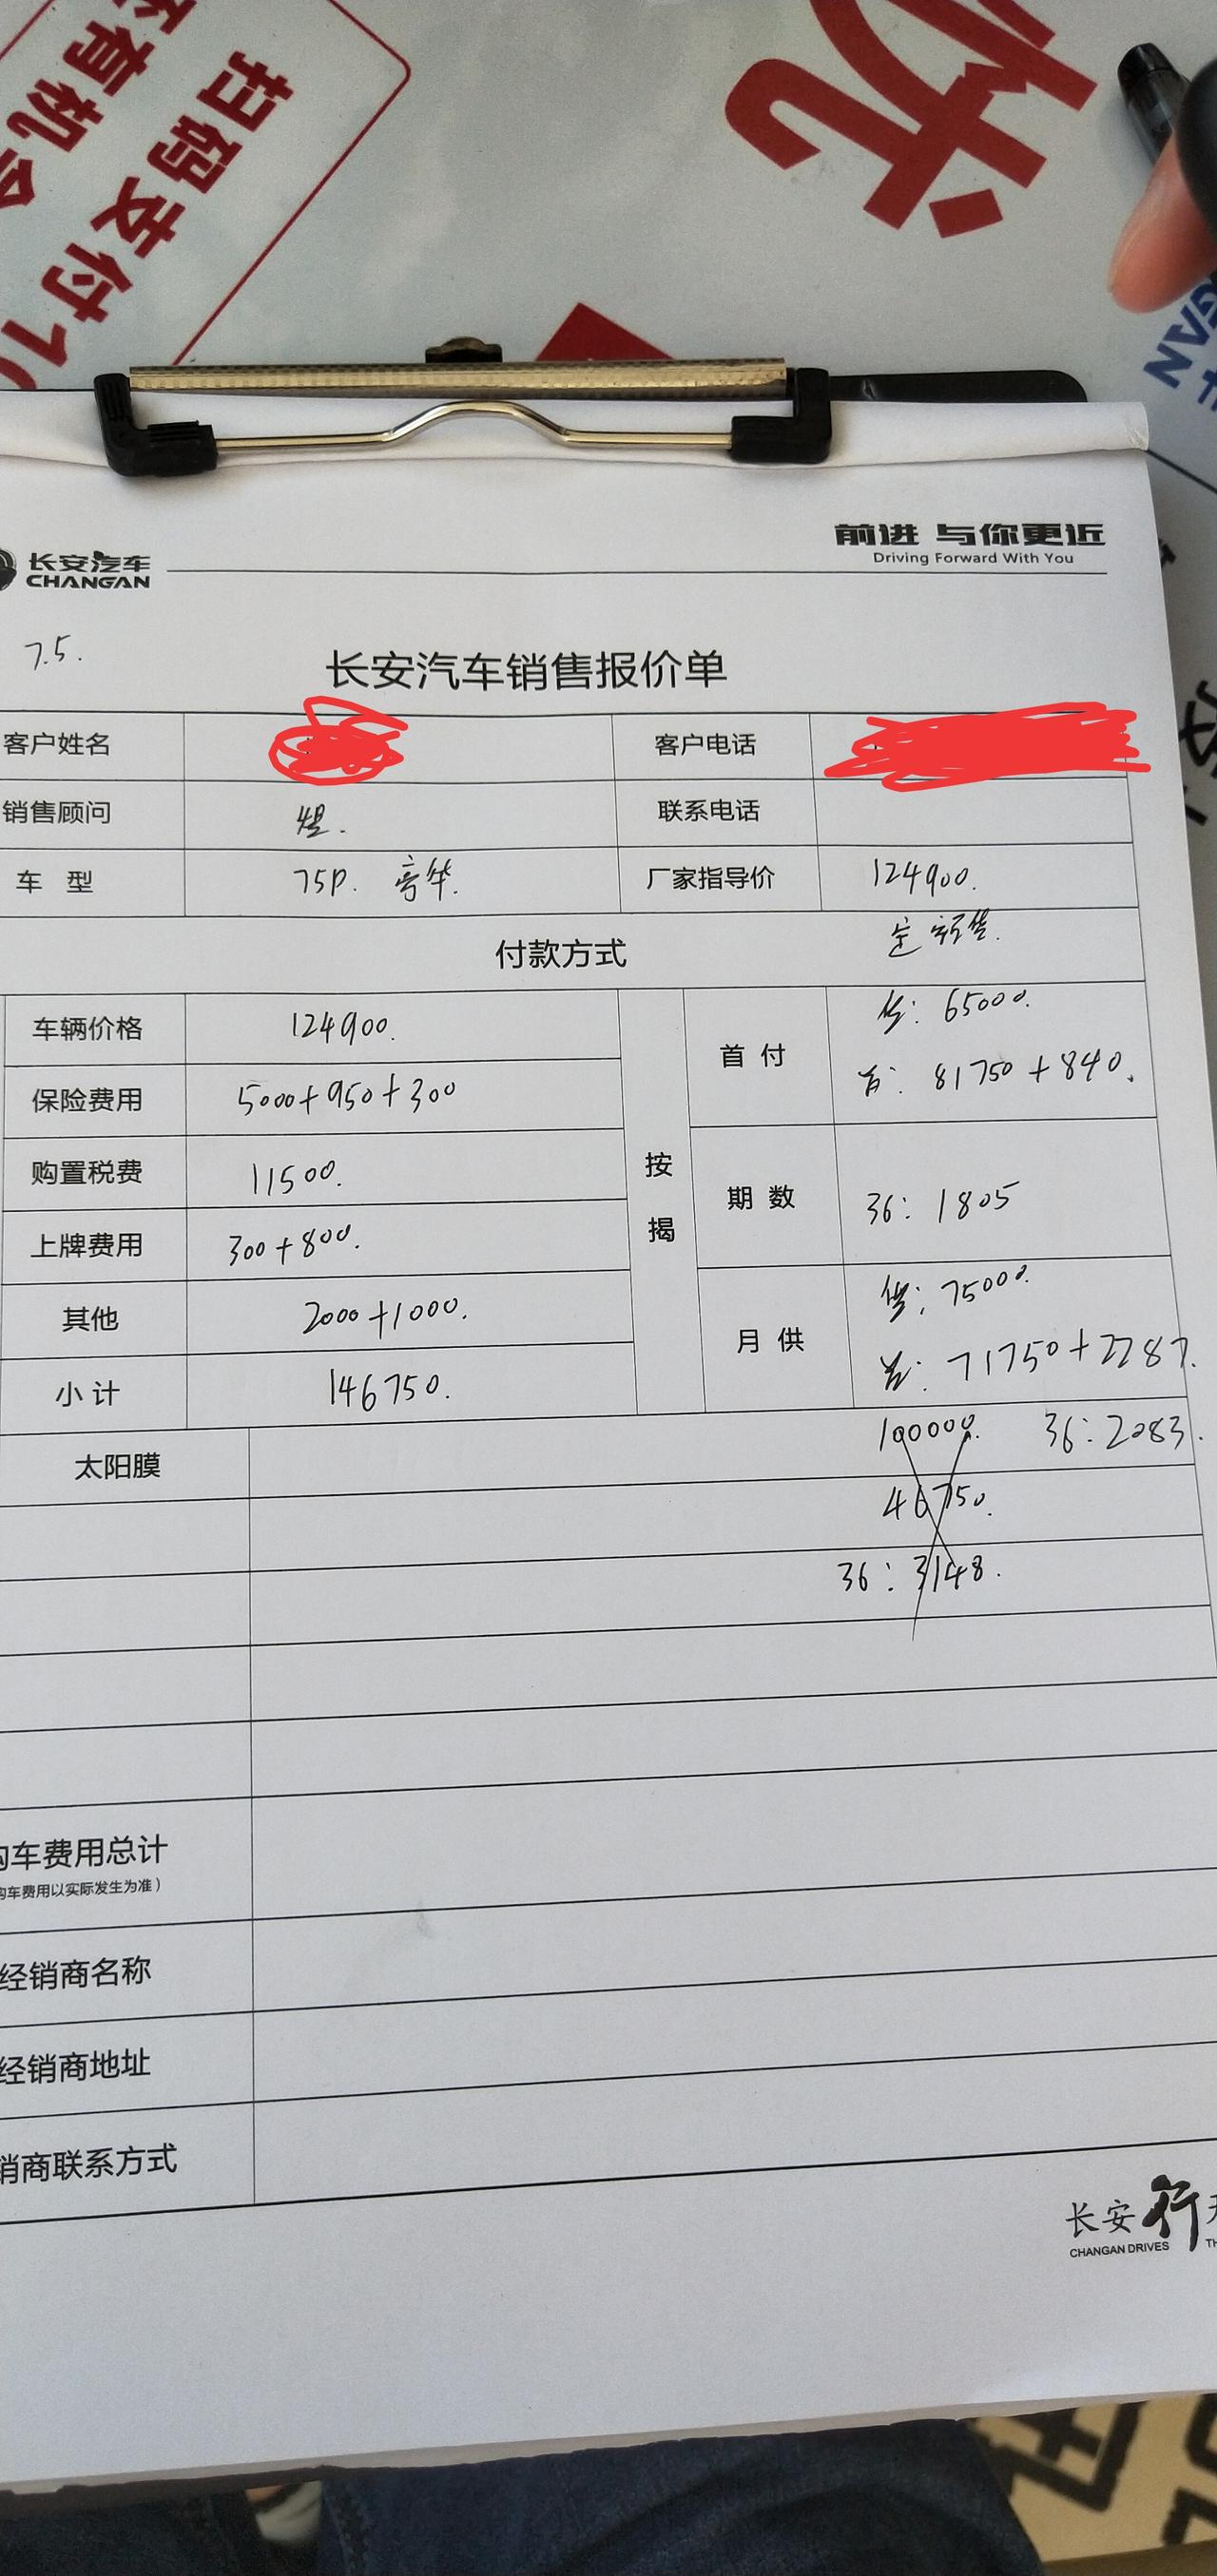 扫码支付1
还有机会
优
前进 与你更近
Driving Forward With You
长安汽车
CHANGAN
7.5.
长安汽车销售报价单
客户姓名 客户电话
销售顾问 煜. 联系电话
车 型 75P. 豪华. 厂家指导价 124900.
付款方式
车辆价格 124900.
保险费用 5000+950+300
购置税费 11500.
上牌费用 300+800.
其他 2000+1000.
小计 146750.
按揭
首付 贷: 65000.
首: 81750+840.
期数 36: 1805
月供 贷: 75000.
首: 71750+2287.
太阳膜
100000. 36:2083.
46750.
36:3148.
购车费用总计
购车费用以实际发生为准）
经销商名称
经销商地址
销商联系方式
长安行天
CHANGAN DRIVES TH